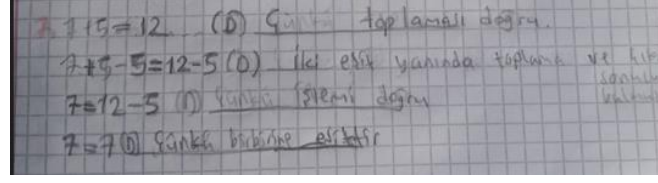 7+5=12 (D) Çünkü toplaması doğru.
7+5-5=12-5 (D) İki eşit yanında toplama ve
7=12-5 (D) Çünkü işlemi doğru
7=7 (D) Çünkü birbirine eşittir